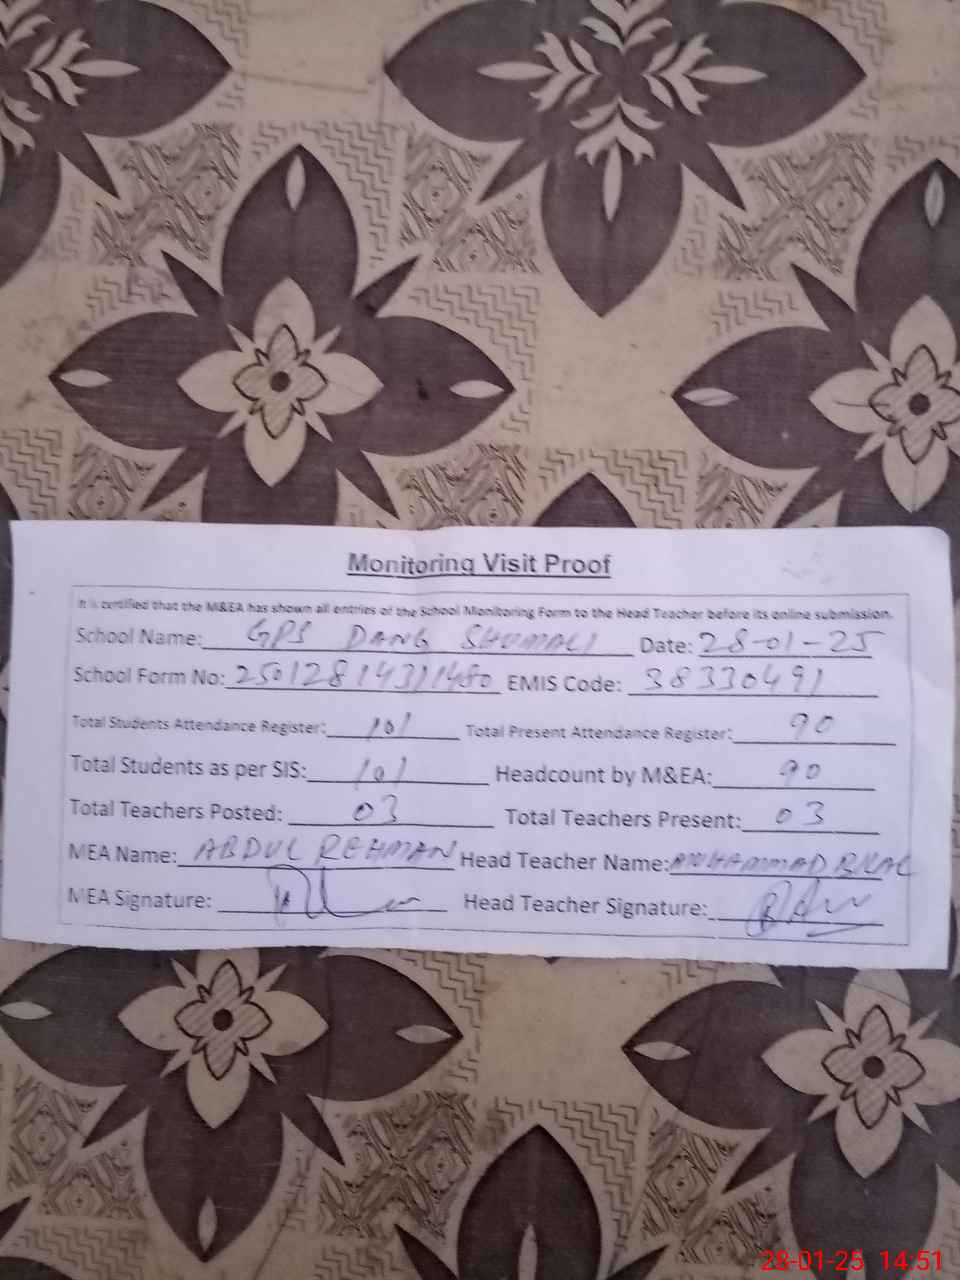 Monitoring Visit Proof
It is certified that the M&EA has shown all entries of the School Monitoring Form to the Head Teacher before its online submission.
School Name: GPS DANG SHUMALI Date: 28-01-25
School Form No: 25012814311480 EMIS Code: 38330491
Total Students Attendance Register: 101 Total Present Attendance Register: 90
Total Students as per SIS: 101 Headcount by M&EA: 90
Total Teachers Posted: 03 Total Teachers Present: 03
MEA Name: ABDUL REHMAN Head Teacher Name: MUHAMMAD BILAL
MEA Signature: Head Teacher Signature:
28-01-25 14:51